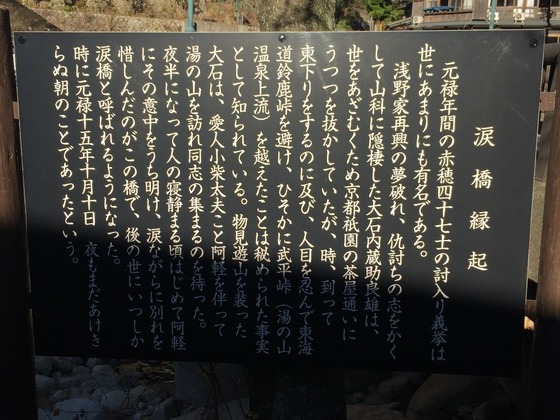 涙橋縁起
元禄年間の赤穂四十七士の討入り義挙は
世にあまりにも有名である。
浅野家再興の夢破れ、仇討ちの志をかく
して山科に隠棲した大石内蔵助良雄は、
世をあざむくため京都祇園の茶屋通いに
うつつを抜かしていたが、時、到って
東下りをするのに及び、人目を忍んで東海
道鈴鹿峠を避け、ひそかに武平峠（湯の山
温泉上流）を越えたことは秘められた事実
として知られている。物見遊山を装った
大石は、愛人小柴太夫こと阿軽を伴って
湯の山を訪れ同志の集まるのを待った。
夜半になって人の寝静まる頃はじめて阿軽
にその意中をうち明け、涙ながらに別れを
惜しんだのがこの橋で、後の世にいつしか
涙橋と呼ばれるようになった。
時に元禄十五年十月十日　夜もまだあけき
らぬ朝のことであったという。